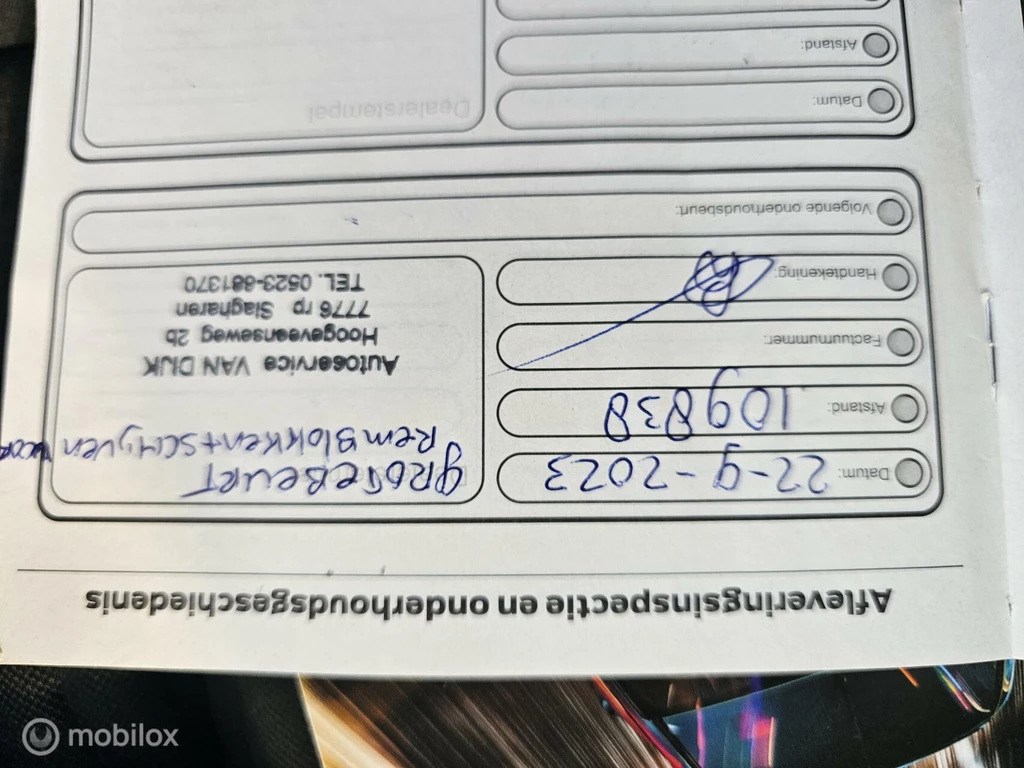 Afleveringsinspectie en onderhoudsgeschiedenis
Datum: 22-9-2023
Afstand: 109838
Factuurnummer:
Handtekening:
Volgende onderhoudsbeurt:
GROTEBEURT
RemBlokken+SCHijven
Autoservice VAN DIJK
Hoogeveenseweg 2b
7776 rp Slagharen
TEL. 0523-681370
Datum:
Afstand:
Dealerstempel
mobilox